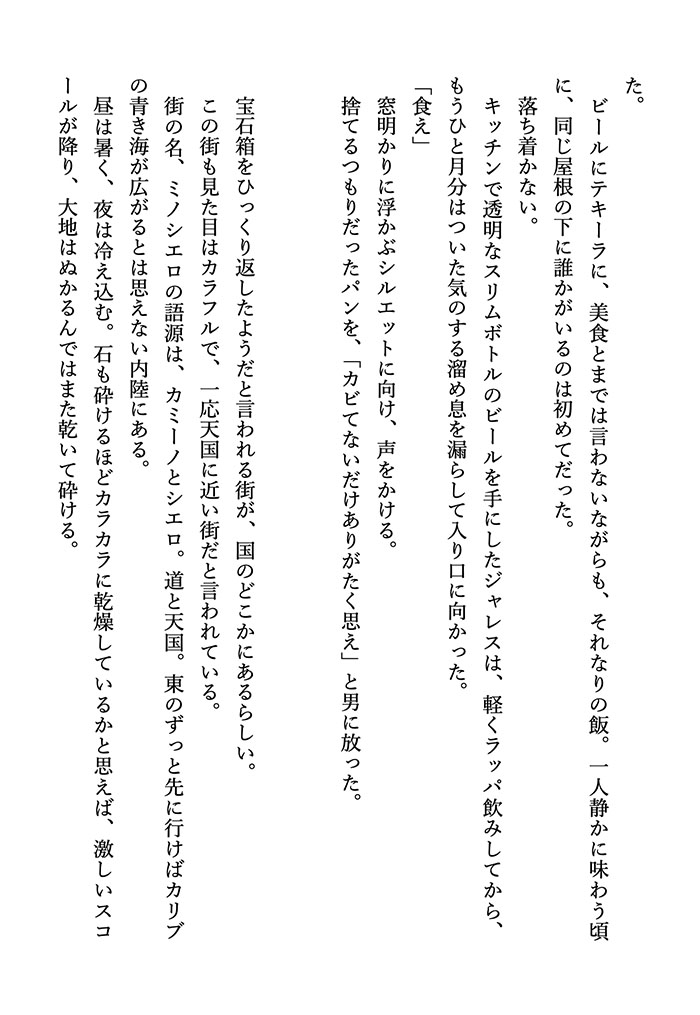 た。
　ビールにテキーラに、美食とまでは言わないながらも、それなりの飯。一人静かに味わう頃
に、同じ屋根の下に誰かがいるのは初めてだった。
　落ち着かない。
　キッチンで透明なスリムボトルのビールを手にしたジャレスは、軽くラッパ飲みしてから、
もうひと月分はついた気のする溜め息を漏らして入り口に向かった。
「食え」
　窓明かりに浮かぶシルエットに向け、声をかける。
　捨てるつもりだったパンを、「カビてないだけありがたく思え」と男に放った。
　宝石箱をひっくり返したようだと言われる街が、国のどこかにあるらしい。
　この街も見た目はカラフルで、一応天国に近い街だと言われている。
　街の名、ミノシエロの語源は、カミーノとシエロ。道と天国。東のずっと先に行けばカリブ
の青き海が広がるとは思えない内陸にある。
　昼は暑く、夜は冷え込む。石も砕けるほどカラカラに乾燥しているかと思えば、激しいスコ
ールが降り、大地はぬかるんではまた乾いて砕ける。